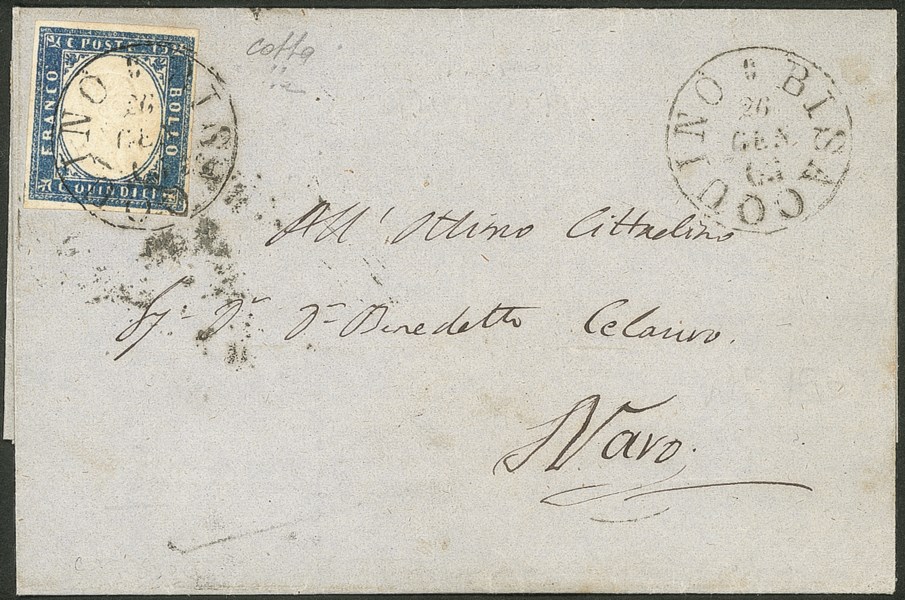 C POSTE
FRANCO
BOLLO
C QUINDICI
BISACQUINO
26
GEN
63
BISACQUINO
26
GEN
63
All' Ottimo Cittadino
Benedetto Celauro.
Naro.